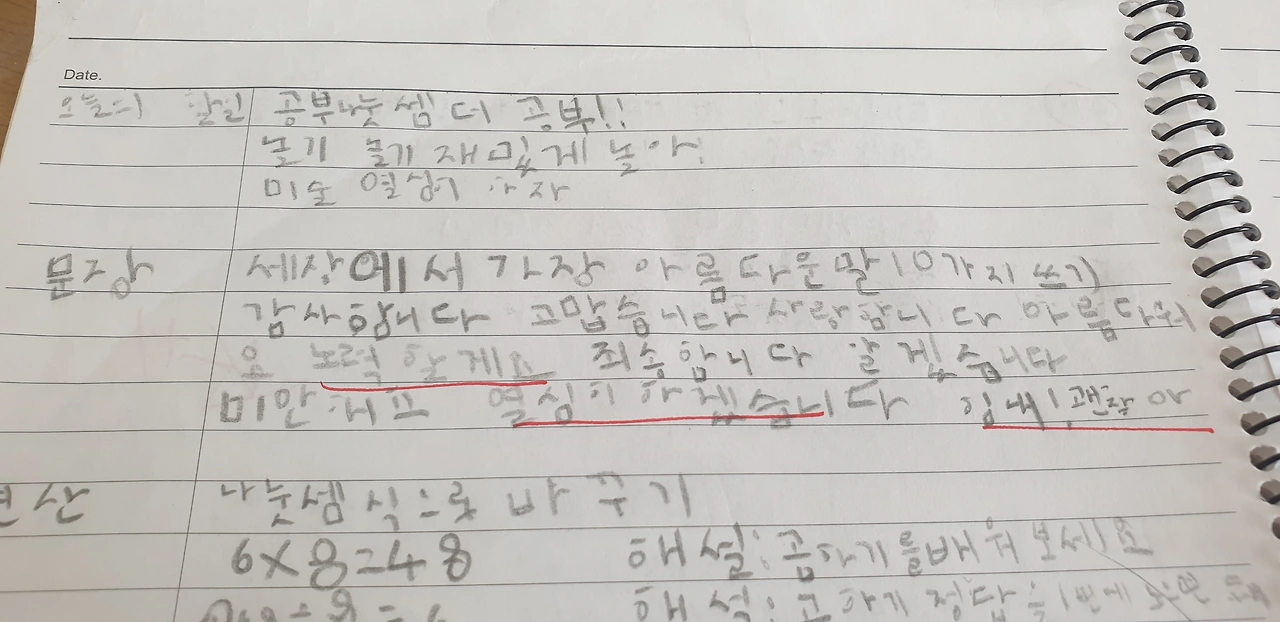 Date.
오늘의 할일 공부 나눗셈 더 공부!!
놀기 놀기 재밌게 놀아!
미술 열심히 하자
문장 세상에서 가장 아름다운말 10가지 쓰기)
감사합니다 고맙습니다 사랑합니다 아름다워
요 노력할게요 죄송합니다 알겠습니다
미안해요 열심히하겠습니다 힘내! 괜찮아
연산 나눗셈식으로 바꾸기
6×8=48 해설:곱하기를배워보세요
해설:곱하기 정답을